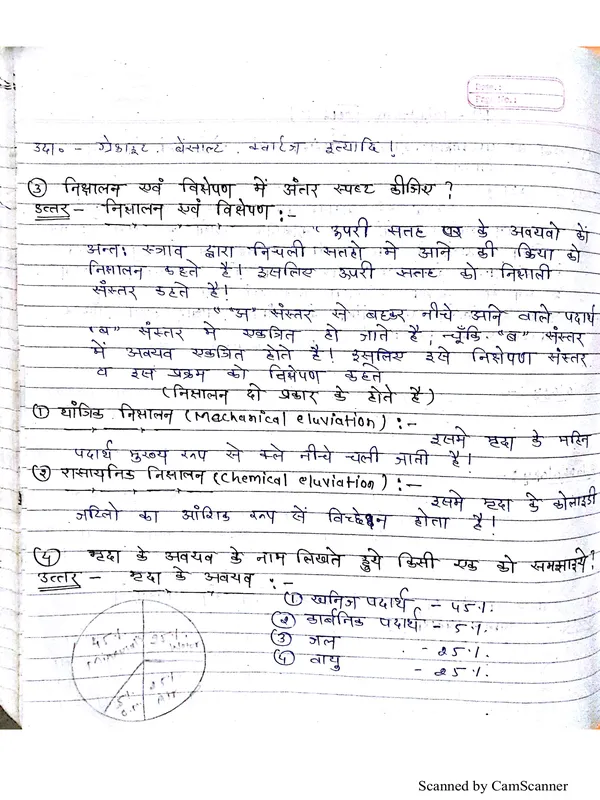 उदा० - ग्रेनाइट, बेसाल्ट, क्वार्टज इत्यादि।
③ निक्षालन एवं विक्षेपण में अंतर स्पष्ट कीजिए ?
उत्तर - निक्षालन एवं विक्षेपण :-
" ऊपरी सतह के अवयवो कों
अन्तः स्त्राव द्वारा निचली सतहो मे आने की क्रिया को
निक्षालन कहते है। इसलिए ऊपरी सतह को निक्षाली
संस्तर कहते है।
" "अ" संस्तर से बहकर नीचे आने वाले पदार्थ
"ब" संस्तर में एकत्रित हो जाते है, चूँकि "ब" संस्तर
में अवयव एकत्रित होते है। इसलिए इसे निक्षेपण संस्तर
व इस प्रक्रम को विक्षेपण कहते
(निक्षालन दो प्रकार के होते है)
① यांत्रिक निक्षालन (Machanical eluviation) :-
इसमे मृदा के महिन
पदार्थ मुख्य रूप से क्ले नीचे चली जाती है।
② रासायनिक निक्षालन (Chemical eluviation) :-
इसमे मृदा के कोलाइडी
जटिलो का आंशिक रूप सें विच्छेदन होता है।
④ मृदा के अवयव के नाम लिखते हुये किसी एक को समझाइये ?
उत्तर - मृदा के अवयव :-
① खनिज पदार्थ - 45%.
② कार्बनिक पदार्थ - 5%.
③ जल - 25%.
④ वायु - 25%.
45% 25%
25%
5%
Scanned by CamScanner